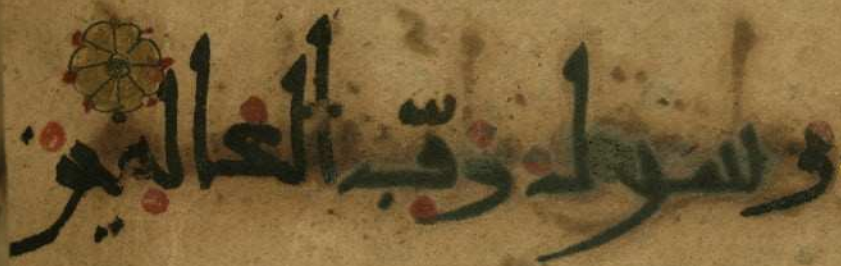 رسول رب العالمين